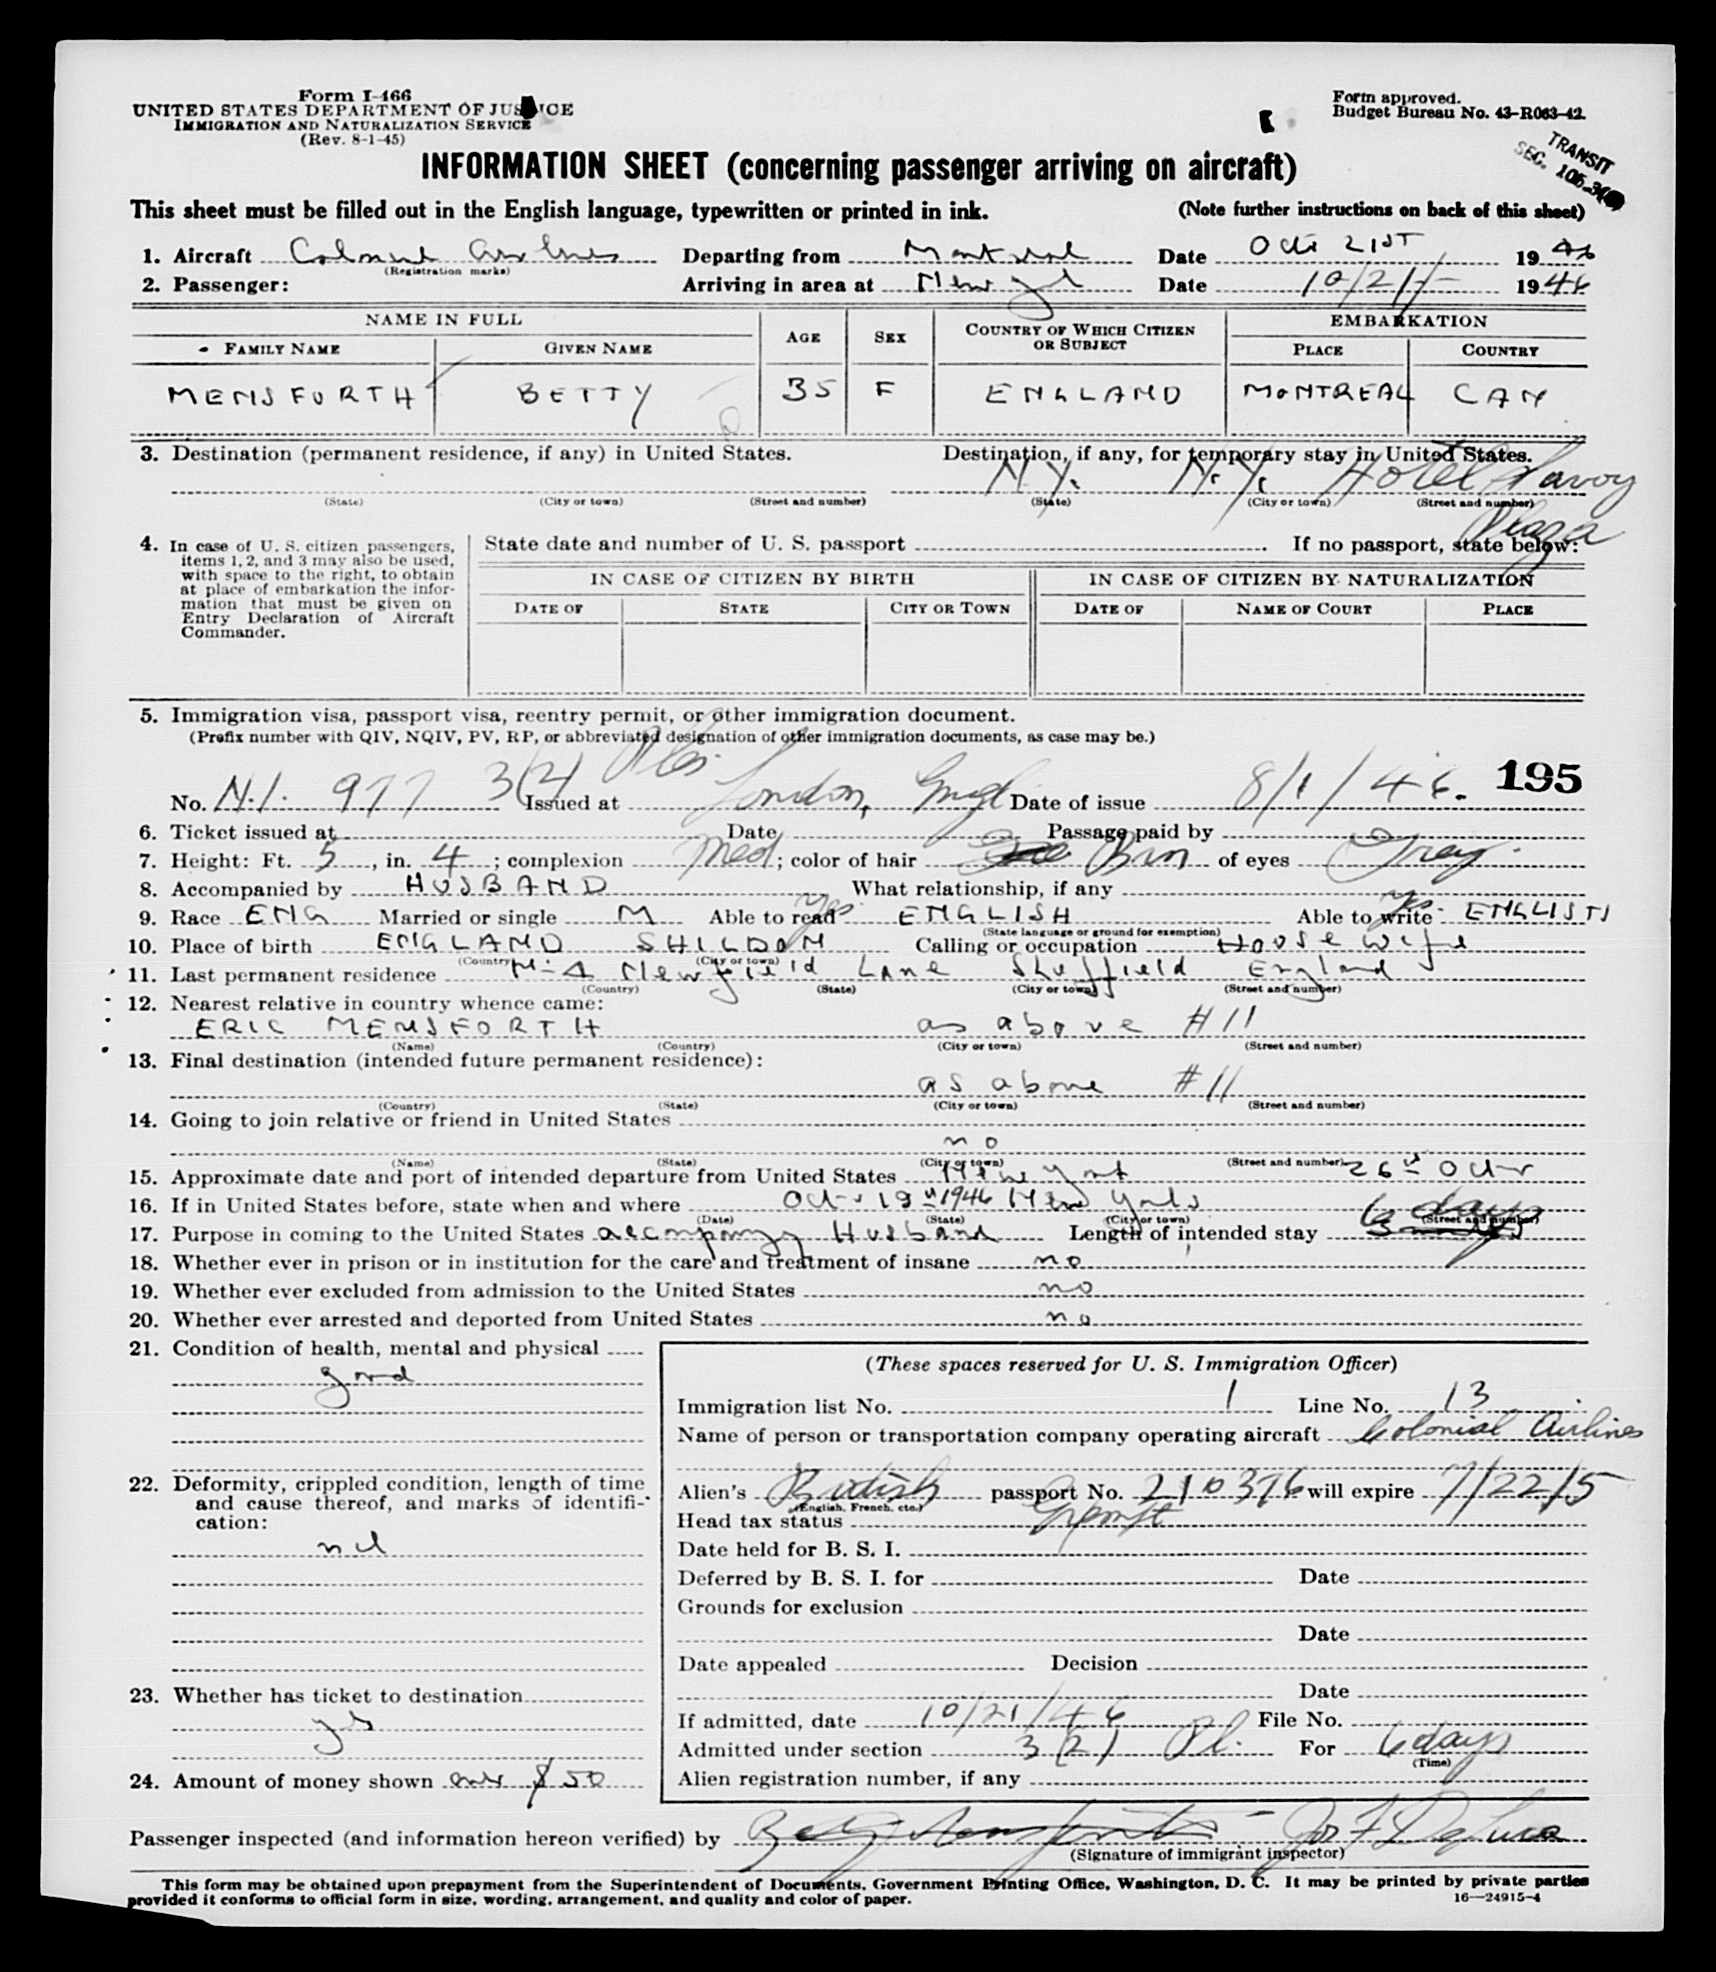 Form I-466
UNITED STATES DEPARTMENT OF JUSTICE
IMMIGRATION AND NATURALIZATION SERVICE
(Rev. 8-1-45)
Form approved.
Budget Bureau No. 43-R063-42.
TRANSIT
SEC.
INFORMATION SHEET (concerning passenger arriving on aircraft)
This sheet must be filled out in the English language, typewritten or printed in ink. (Note further instructions on back of this sheet)
1. Aircraft Colonial Airlines Departing from Montreal Date Oct 21ST 1946
(Registration marks)
2. Passenger: Arriving in area at New York Date 10/21/ 1946
NAME IN FULL AGE SEX COUNTRY OF WHICH CITIZEN OR SUBJECT EMBARKATION
FAMILY NAME GIVEN NAME PLACE COUNTRY
MENSFORTH BETTY 35 F ENGLAND MONTREAL CAN
3. Destination (permanent residence, if any) in United States. Destination, if any, for temporary stay in United States.
N.Y. N.Y. Hotel Savoy Plaza
(State) (City or town) (Street and number) (State) (City or town) (Street and number)
4. In case of U. S. citizen passengers, items 1, 2, and 3 may also be used, with space to the right, to obtain at place of embarkation the information that must be given on Entry Declaration of Aircraft Commander.
State date and number of U. S. passport . If no passport, state below:
IN CASE OF CITIZEN BY BIRTH IN CASE OF CITIZEN BY NATURALIZATION
DATE OF STATE CITY OR TOWN DATE OF NAME OF COURT PLACE
5. Immigration visa, passport visa, reentry permit, or other immigration document.
(Prefix number with QIV, NQIV, PV, RP, or abbreviated designation of other immigration documents, as case may be.)
195
No. N.I. 977 3(2) Issued at London, Engl Date of issue 8/1/46.
6. Ticket issued at Date Passage paid by
7. Height: Ft. 5, in. 4; complexion Med; color of hair Brn of eyes Grey.
8. Accompanied by HUSBAND What relationship, if any
9. Race ENG Married or single M Able to read yes ENGLISH Able to write yes ENGLISH
(State language or ground for exemption)
10. Place of birth ENGLAND SHILDON Calling or occupation Housewife
(Country) (City or town)
11. Last permanent residence Newfield Lane Sheffield England
(Country) (State) (City or town) (Street and number)
12. Nearest relative in country whence came:
ERIC MENSFORTH as above #11
(Name) (Country) (City or town) (Street and number)
13. Final destination (intended future permanent residence):
as above #11
(Country) (State) (City or town) (Street and number)
14. Going to join relative or friend in United States
no
(Name) (State) (City or town) (Street and number)
15. Approximate date and port of intended departure from United States New York 26th Octr
16. If in United States before, state when and where Oct 1946 New York
(Date) (State) (City or town) (Street and number)
17. Purpose in coming to the United States accompany Husband Length of intended stay 6 days
18. Whether ever in prison or in institution for the care and treatment of insane no
19. Whether ever excluded from admission to the United States no
20. Whether ever arrested and deported from United States no
21. Condition of health, mental and physical
good
22. Deformity, crippled condition, length of time and cause thereof, and marks of identification:
nil
23. Whether has ticket to destination
yes
24. Amount of money shown over $50
(These spaces reserved for U. S. Immigration Officer)
Immigration list No. 1 Line No. 13
Name of person or transportation company operating aircraft Colonial Airlines
Alien's British passport No. 210376 will expire 7/22/5
(English, French, etc.)
Head tax status Exempt
Date held for B. S. I.
Deferred by B. S. I. for Date
Grounds for exclusion
Date
Date appealed Decision
Date
If admitted, date 10/21/46 File No.
Admitted under section 3(2) Pl. For 6 days
(Time)
Alien registration number, if any
Passenger inspected (and information hereon verified) by Betty Mensforth
(Signature of immigrant inspector)
This form may be obtained upon prepayment from the Superintendent of Documents, Government Printing Office, Washington, D. C. It may be printed by private parties
provided it conforms to official form in size, wording, arrangement, and quality and color of paper. 16—24915-4